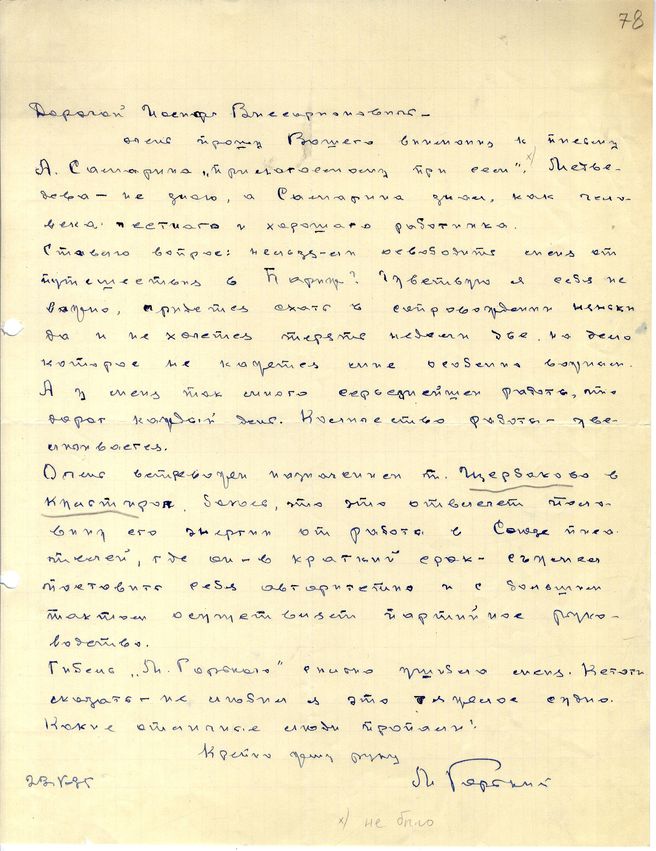 78
Дорогой Иосиф Виссарионович —
очень прошу Вашего внимания к письму
А. Самарина „прилагаемому при сем“. x) Медве-
дева — не знаю, а Самарина знаю, как чело-
века честного и хорошего работника.
Ставлю вопрос: нельзя-ли освободить меня от
путешествия в Париж? Чувствую я себя не
важно, придется ехать в сопровождении
да и не хочется терять недели две, на дело
которое не кажется мне особенно важным.
А у меня так много серьезнейшей работы, что
дорог каждый день. Количество работы — уве-
личивается.
Очень встревожен назначением т. Щербакова в
боюсь, что это отвлечет поло-
вину его энергии от работы в Союзе писа-
телей, где он — в краткий срок — сумел
поставить себя авторитетно и с большим
тактом осуществляет партийное руко-
водство.
Гибель „М. Горького“ сильно ушибла меня. Кстати
сказать — не любил я это тяжелое судно.
Какие отличные люди пропали!
Крепко жму руку
М. Горький
x) не было